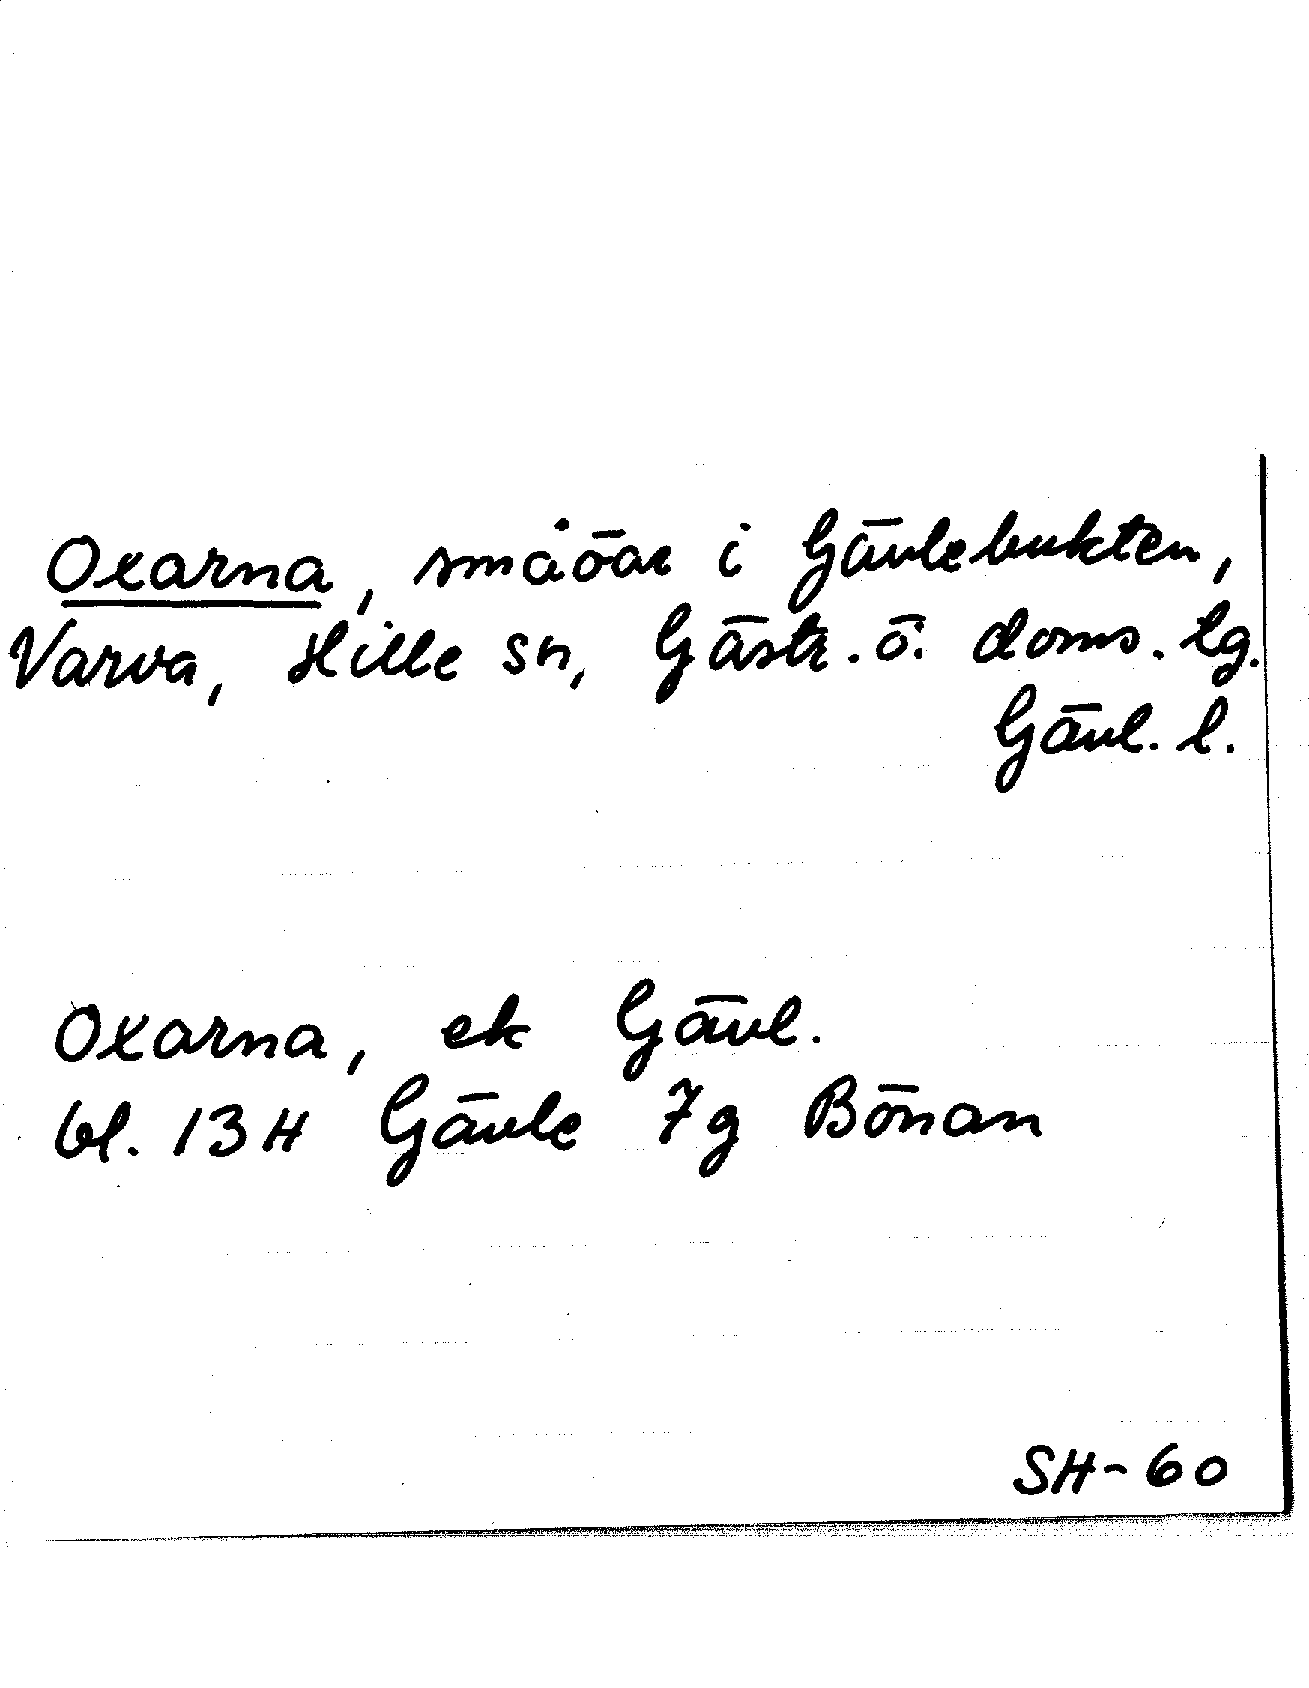 Oxarna, småöar i Gävlebukten,
Varva, Hille sn, Gästr. ö. doms. lg.
Gävl. l.
Oxarna, ek Gävl.
bl. 13H Gävle 7g Bönan
SH-60